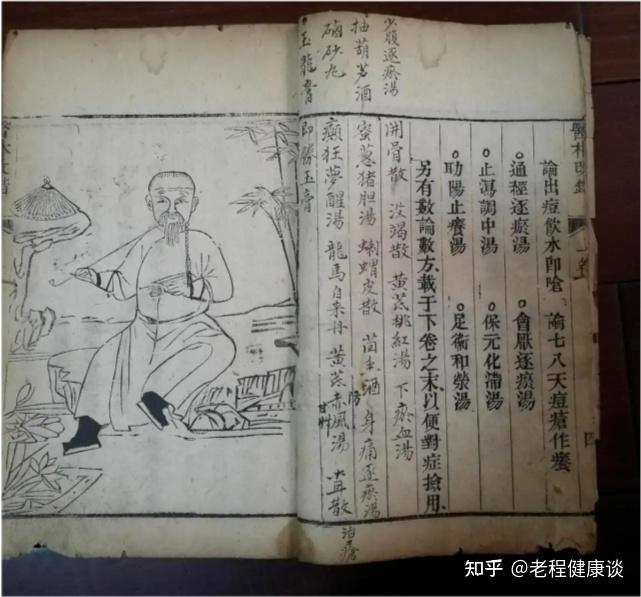 醫林改錯
論出痘飲水卽嗆 論七八天痘瘡作癢
○通經逐瘀湯 ○會厭逐瘀湯
○止瀉調中湯 ○保元化滯湯
○助陽止癢湯 ○足衛和榮湯
另有數論數方、載于下卷之末、以便對症撿用、
少腹逐瘀湯
開骨散 沒竭散 黃芪桃紅湯 下瘀血湯
抽葫芦酒
蜜蔥猪胆湯 刺蝟皮散 茴香酒 身痛逐瘀湯
硇砂丸
癲狂夢醒湯 龍馬自來丹 黃芪赤風湯
防
治瘡
玉龍膏 即勝玉膏
知乎 @老程健康谈